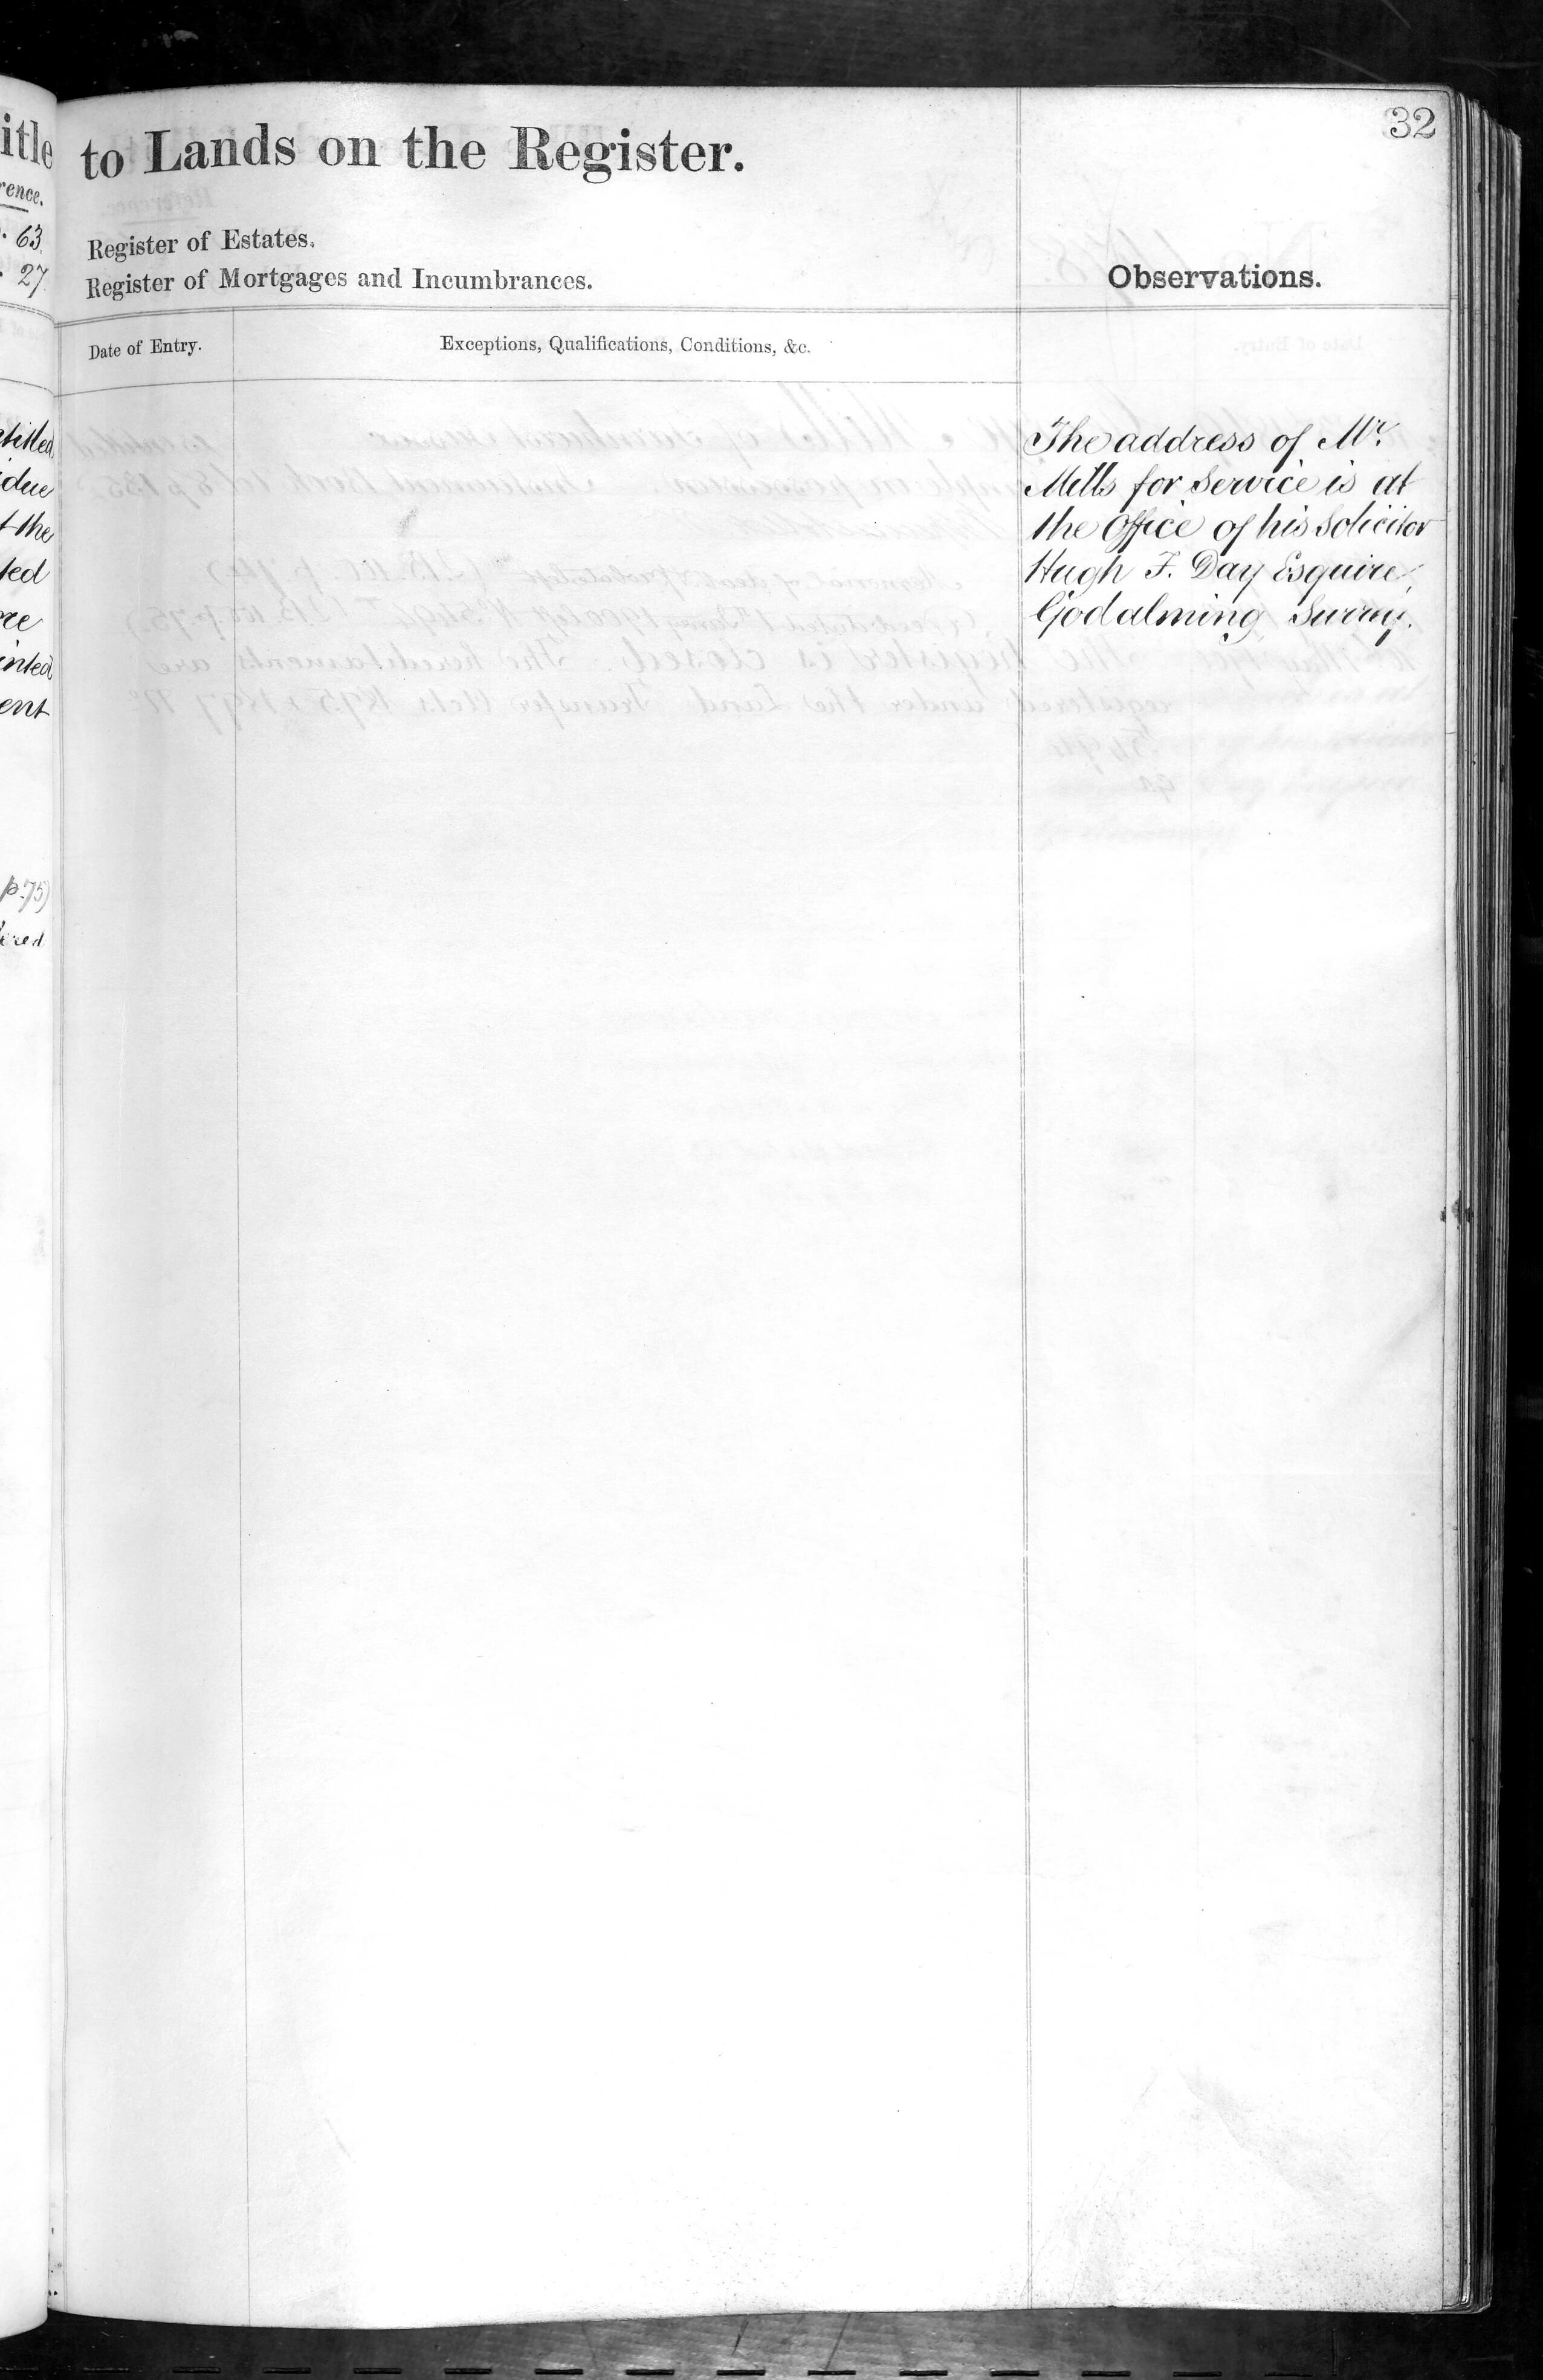 32
to Lands on the Register.
Register of Estates.
Register of Mortgages and Incumbrances.
Observations.
Date of Entry.
Exceptions, Qualifications, Conditions, &c.
The address of Mr.
Mills for Service is at
the Office of his Solicitor
Hugh F. Day Esquire,
Godalming Surrey.
itle
rence.
63.
27.
titled
due
t the
ted
ore
inted
ent
p. 75)
ered